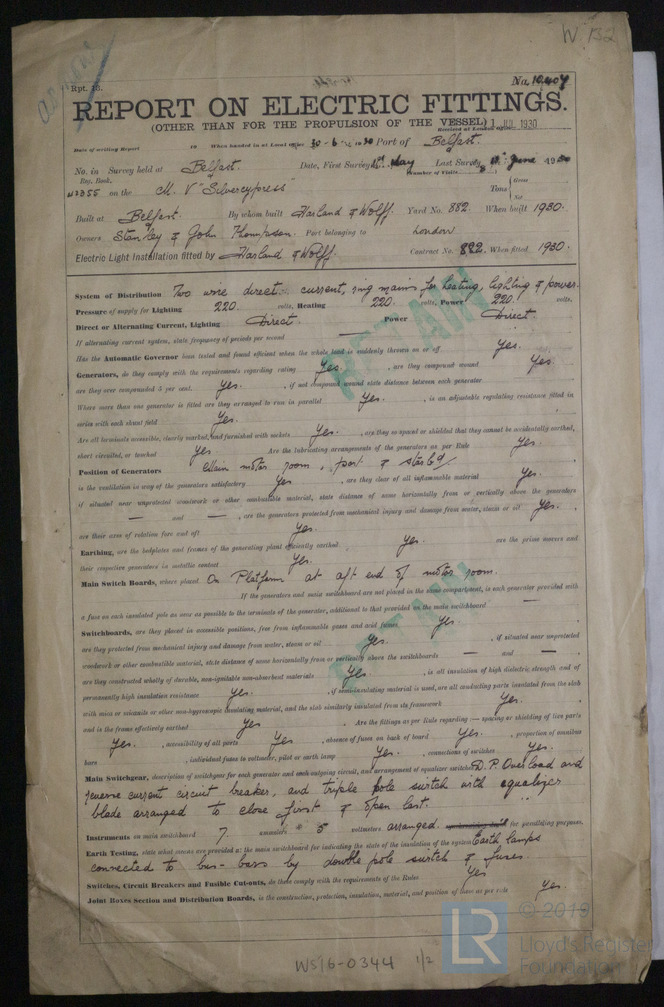 W 132
Rpt. 13.
No. 10404
REPORT ON ELECTRIC FITTINGS.
(OTHER THAN FOR THE PROPULSION OF THE VESSEL) 1 JUL 1930
Received at London Office
Date of writing Report 19 When handed in at Local Office 30-6-1930 Port of Belfast.
No. in Survey held at Belfast. Date, First Survey May Last Survey June 1930
Reg. Book. Number of Visits
42355 on the M. V "Silvercypress Tons { Gross Net
Built at Belfast. By whom built Harland & Wolff. Yard No. 882. When built 1930.
Owners Stanley & John Thompson. Port belonging to London
Electric Light Installation fitted by Harland & Wolff. Contract No. 882. When fitted 1930.
System of Distribution Two wire direct current, ring mains for heating, lighting & power.
Pressure of supply for Lighting 220. volts, Heating 220. volts, Power 220. volts.
Direct or Alternating Current, Lighting Direct. Power Direct.
If alternating current system, state frequency of periods per second —
Has the Automatic Governor been tested and found efficient when the whole load is suddenly thrown on or off Yes.
Generators, do they comply with the requirements regarding rating Yes. , are they compound wound Yes.
are they over compounded 5 per cent. Yes. , if not compound wound state distance between each generator
Where more than one generator is fitted are they arranged to run in parallel Yes. , is an adjustable regulating resistance fitted in
series with each shunt field Yes.
Are all terminals accessible, clearly marked, and furnished with sockets Yes. , are they so spaced or shielded that they cannot be accidentally earthed,
short circuited, or touched Yes. Are the lubricating arrangements of the generators as per Rule Yes.
Position of Generators Main motor room, port & starbd
is the ventilation in way of the generators satisfactory Yes , are they clear of all inflammable material Yes.
if situated near unprotected woodwork or other combustible material, state distance of same horizontally from or vertically above the generators
— and — , are the generators protected from mechanical injury and damage from water, steam or oil Yes.
are their axes of rotation fore and aft Yes.
Earthing, are the bedplates and frames of the generating plant efficiently earthed Yes. are the prime movers and
their respective generators in metallic contact Yes.
Main Switch Boards, where placed On Platform at aft end of motor room.
If the generators and main switchboard are not placed in the same compartment, is each generator provided with
a fuse on each insulated pole as near as possible to the terminals of the generator, additional to that provided on the main switchboard —
Switchboards, are they placed in accessible positions, free from inflammable gases and acid fumes Yes.
are they protected from mechanical injury and damage from water, steam or oil Yes. , if situated near unprotected
woodwork or other combustible material, state distance of same horizontally from or vertically above the switchboards — and —
are they constructed wholly of durable, non-ignitable non-absorbent materials Yes. , is all insulation of high dielectric strength and of
permanently high insulation resistance Yes. , if semi-insulating material is used, are all conducting parts insulated from the slab
with mica or micanite or other non-hygroscopic insulating material, and the slab similarly insulated from its framework Yes.
and is the frame effectively earthed Yes . Are the fittings as per Rule regarding:— spacing or shielding of live parts
Yes. , accessibility of all parts Yes , absence of fuses on back of board Yes. , proportion of omnibus
bars Yes. , individual fuses to voltmeter, pilot or earth lamp Yes. , connections of switches Yes.
Main Switchgear, description of switchgear for each generator and each outgoing circuit, and arrangement of equalizer switches D.P. Overload and
reverse current circuit breaker, and triple pole switch with equalizer
blade arranged to close first & open last.
Instruments on main switchboard 7. ammeters 5 voltmeters arranged for paralleling purposes.
Earth Testing, state what means are provided at the main switchboard for indicating the state of the insulation of the system Earth lamps
connected to bus-bars by double pole switch & fuses.
Switches, Circuit Breakers and Fusible Cut-outs, do these comply with the requirements of the Rules Yes
Joint Boxes Section and Distribution Boards, is the construction, protection, insulation, material, and position of these as per rule Yes.
WS16-0344 1/2
LR
© 2019
Lloyd's Register
Foundation